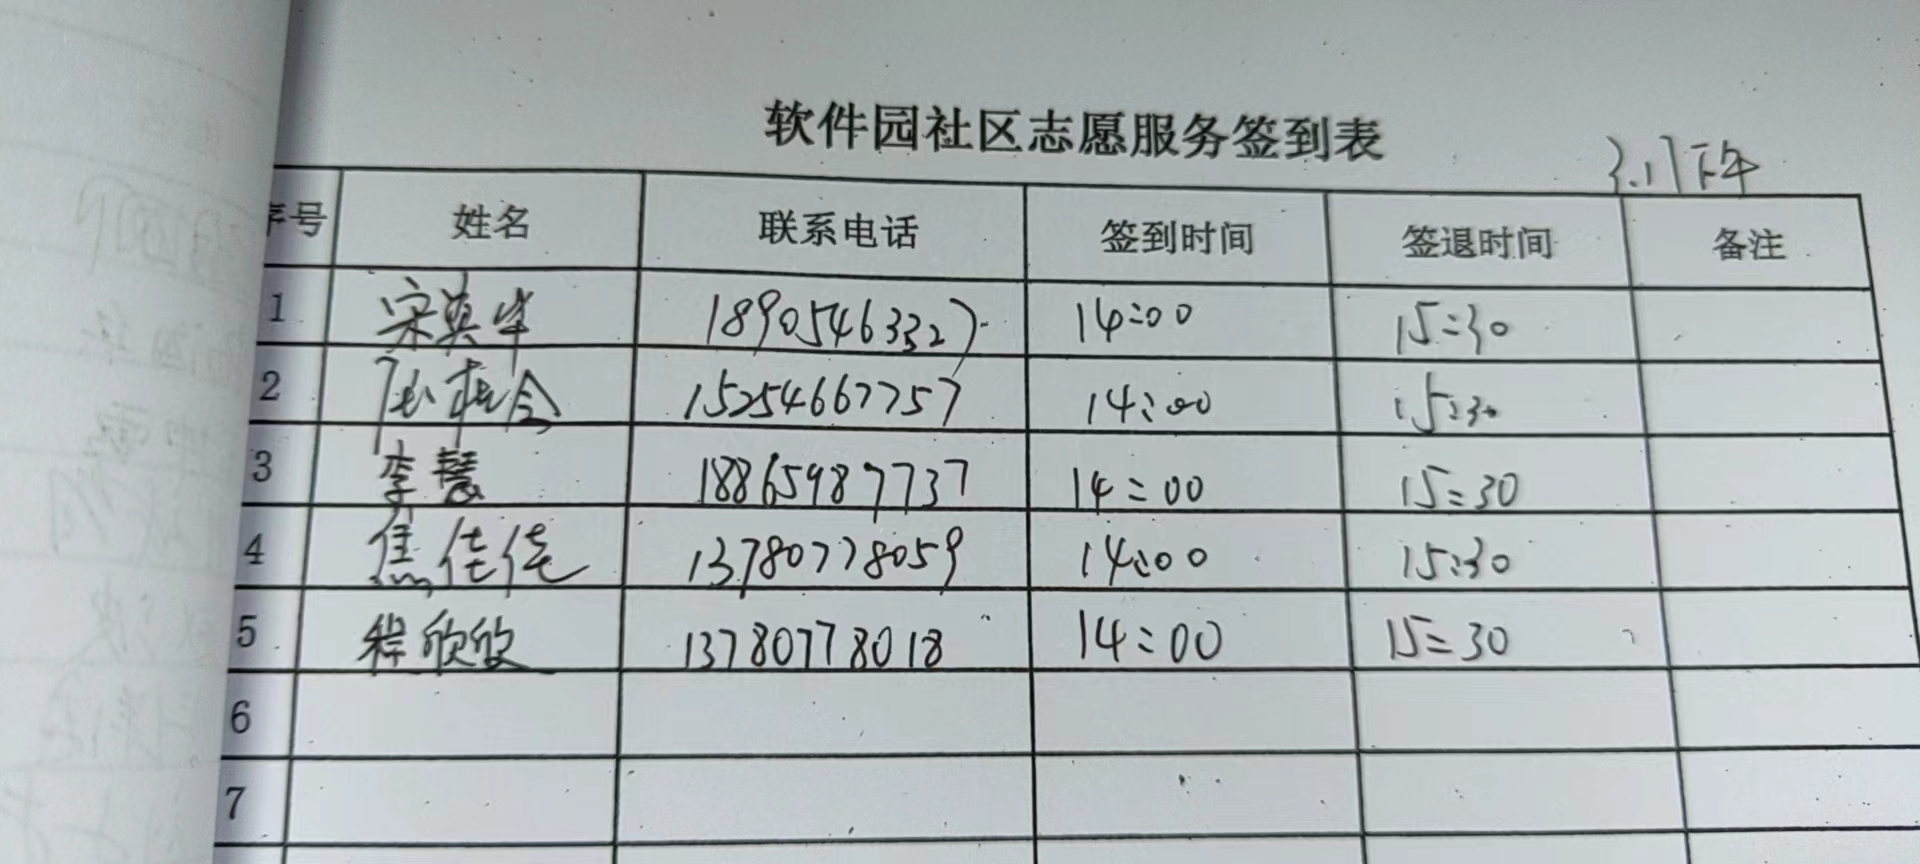 软件园社区志愿服务签到表
3.17下午
序号 姓名 联系电话 签到时间 签退时间 备注
1 宋英华 18905463327 14:00 15:30
2 15254667757 14:00 15:30
3 李慧 18865987737 14:00 15:30
4 焦佳佳 13780778059 14:00 15:30
5 程欣欣 13780778018 14:00 15:30
6
7